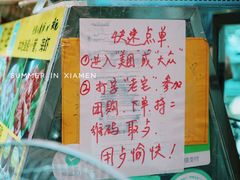 快速点单
①进入美团或"大众"
②打号"老宅"参加
团购、下单持二
维码取与.
用与愉快!
SUMMER IN XIAMEN